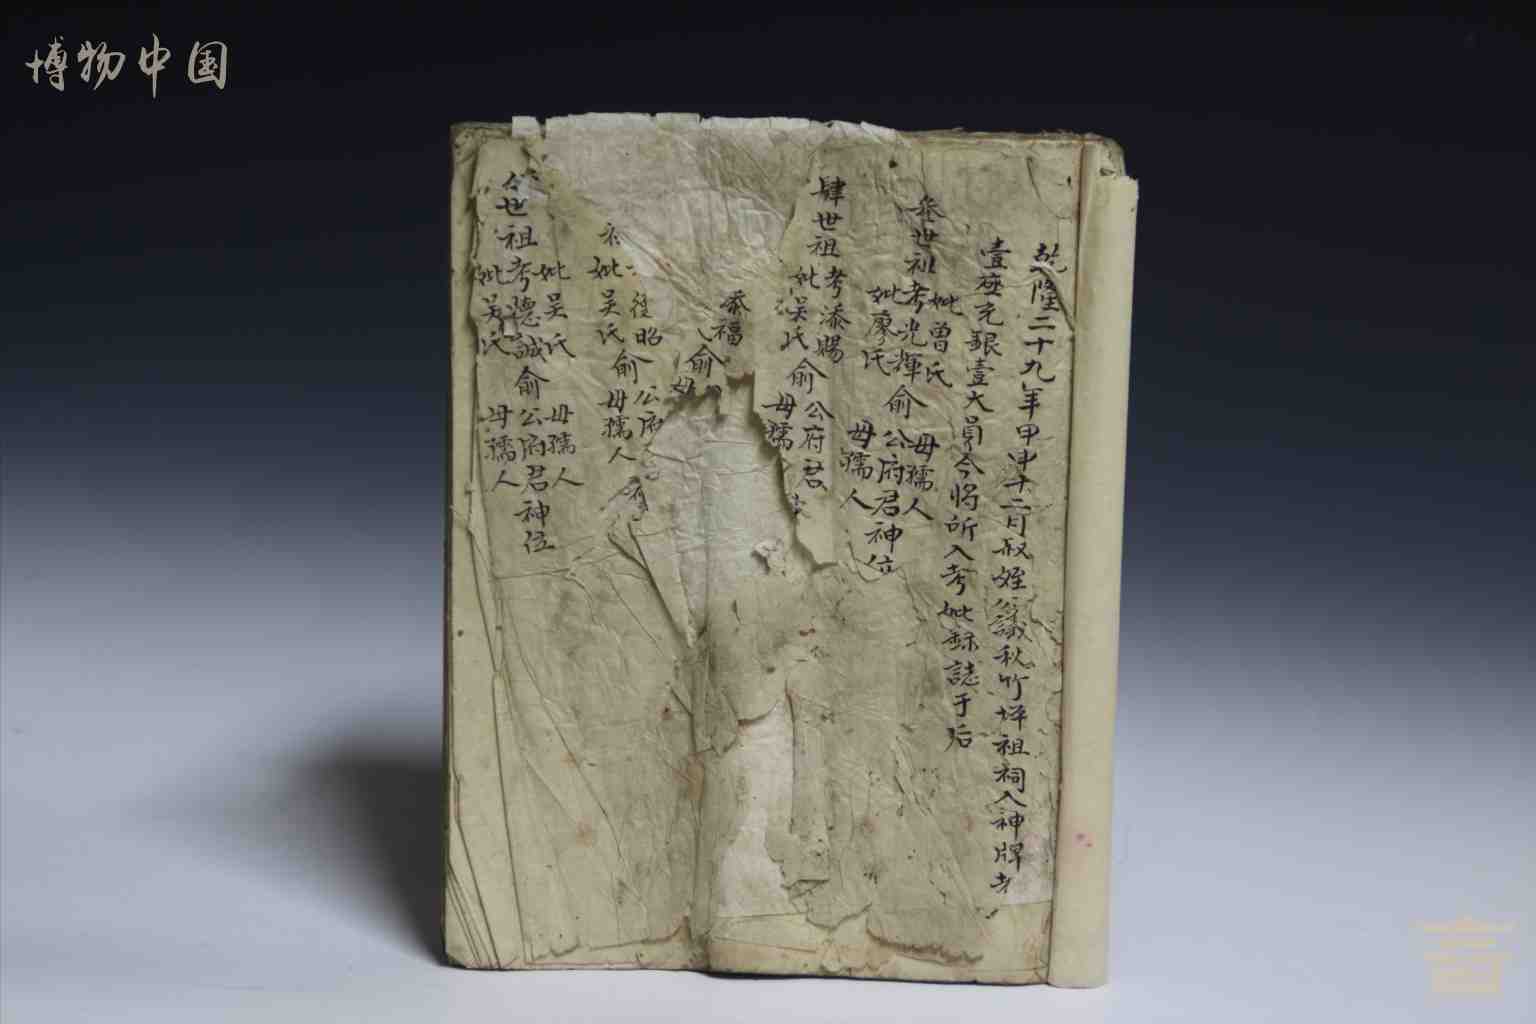 博物中国
乾隆二十九年甲申十二月叔姪議秋竹坪祖祠入神牌者
壹座元銀壹大員今将所入考妣録誌于后
妣曾氏 母孺人
叁世祖考光輝俞公府君神位
妣廖氏 母孺人
肆世祖考添賜俞公府君
妣吴氏 母孺
添福俞
母
俊昭俞公府
妣吴氏 母孺人
妣吴氏 母孺人
世祖考德誠俞公府君神位
妣吴氏 母孺人